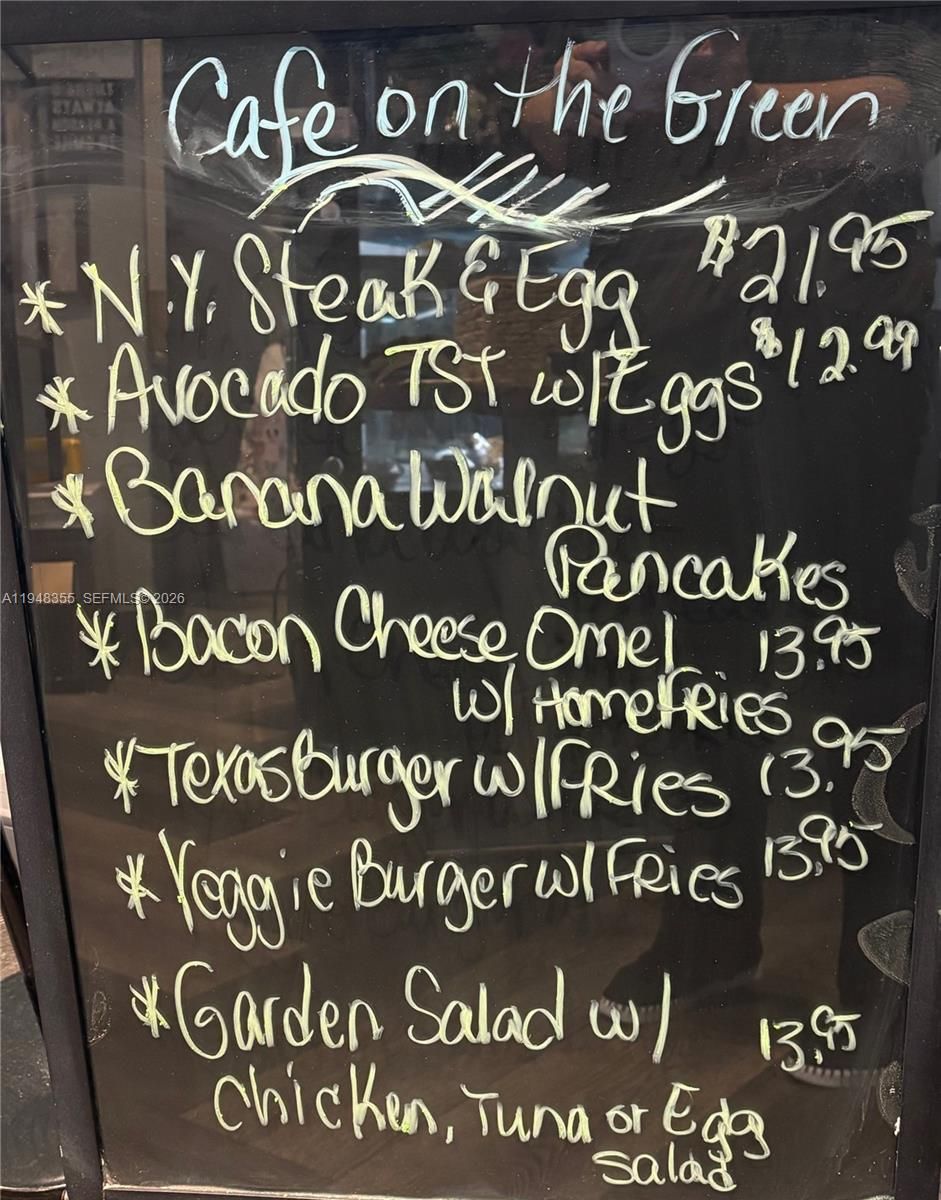 Cafe on the Green
* N.Y. Steak & Egg $21.95
* Avocado TST w/Eggs $12.99
* Banana Walnut
Pancakes
A11948355 SEFMLS© 2026
* Bacon Cheese Omel 13.95
w/ HomeFRies
* Texas Burger w/FRies 13.95
* Veggie Burger w/ FRies 13.95
* Garden Salad w/ 13.95
Chicken, Tuna or Egg
salad